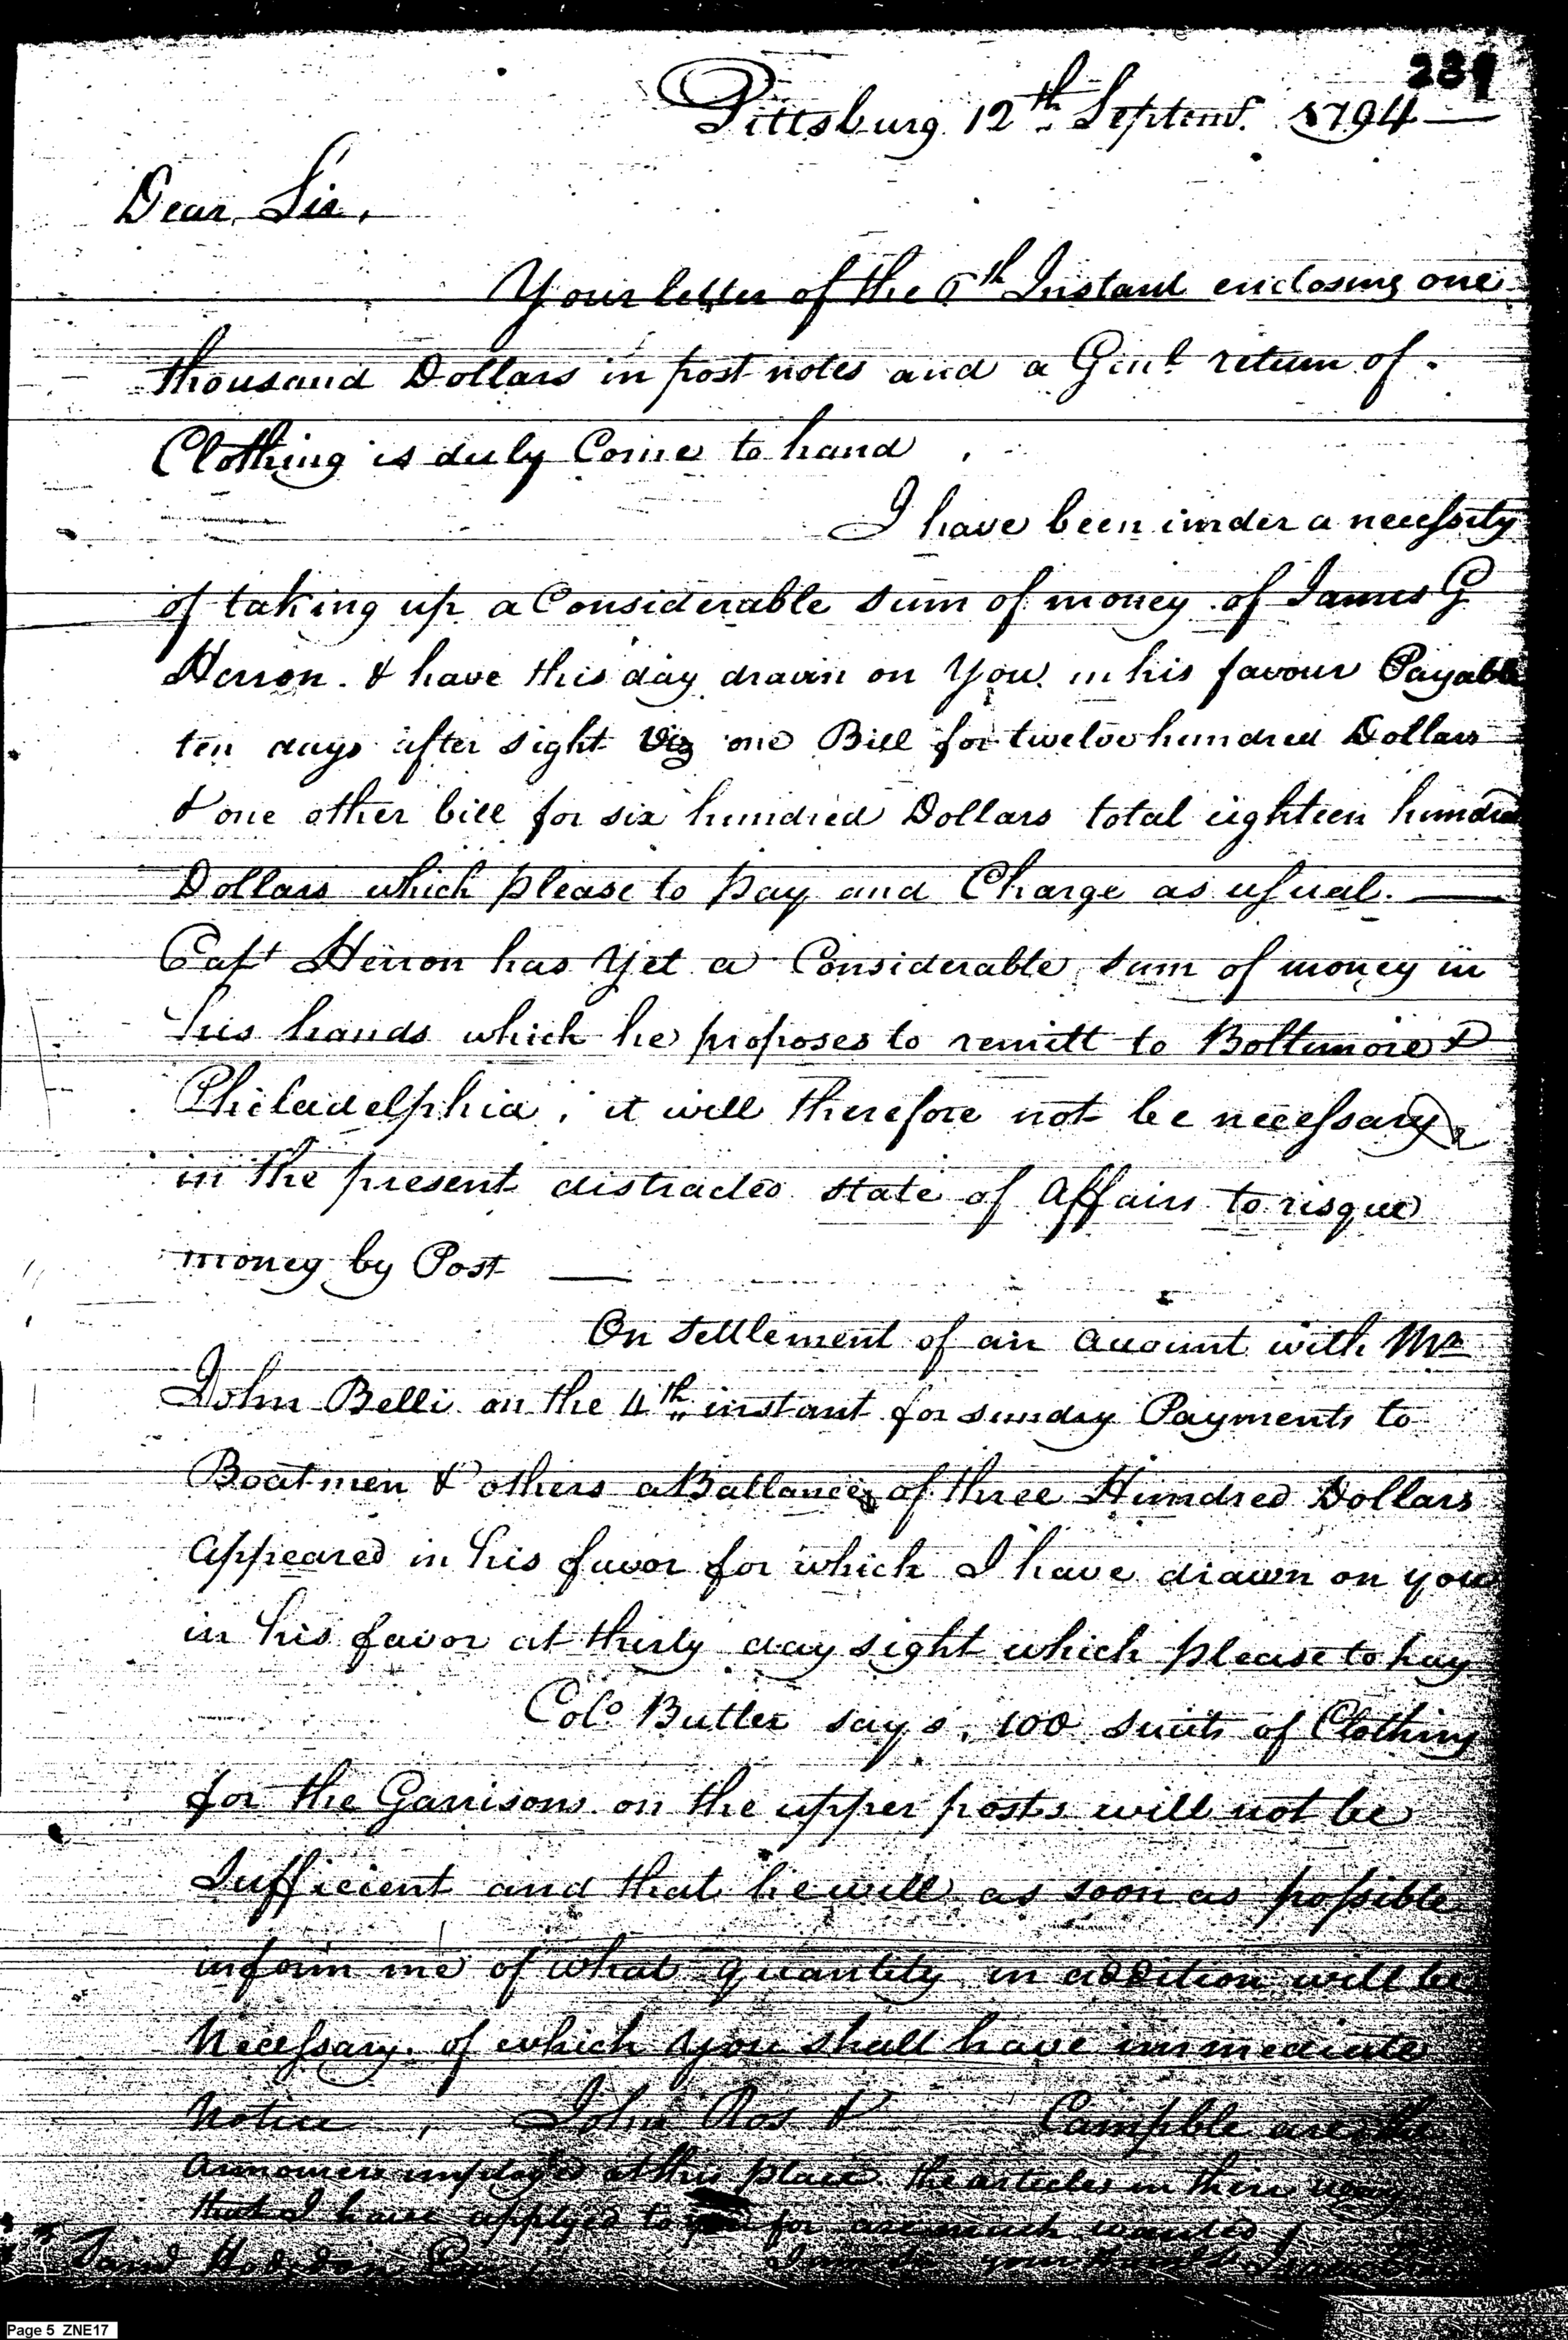 239
Pittsburg 12th Septemr. 1794
Dear Sir,
Your letter of the 6th Instant enclosing one
thousand Dollars in post notes and a Genl return of
Clothing is duly Come to hand.
I have been under a necessity
of taking up a Considerable sum of money of James G
Herron. & have this day drawn on You in his favour Payable
ten days after sight Viz one Bill for twelve hundred Dollars
& one other bill for six hundred Dollars total eighteen hundred
Dollars which please to pay and Charge as usual. —
Capt Herron has Yet a Considerable sum of money in
his hands which he proposes to remitt to Boltimore &
Philadelphia, it will therefore not be necessary
in the present distracted state of Affairs to risque
money by Post —
On settlement of an account with Mr
John Belli on the 4th instant for sundry Payments to
Boatmen & others a Ballance of three Hundred Dollars
appeared in his favor for which I have drawn on you
in his favor at thirty day sight which please to pay
Colo Butler says, 100 suits of Clothing
for the Garrisons on the upper posts will not be
Sufficient and that he will as soon as possible
inform me of what quantity in addition will be
Necessary. of which you shall have immediate
Notice, John Ros & Campble are the
Armourers employed at this place. the articles in their way
that I have applyed to for are much wanted
Saml Hodgdon Esqr
Page 5 ZNE17